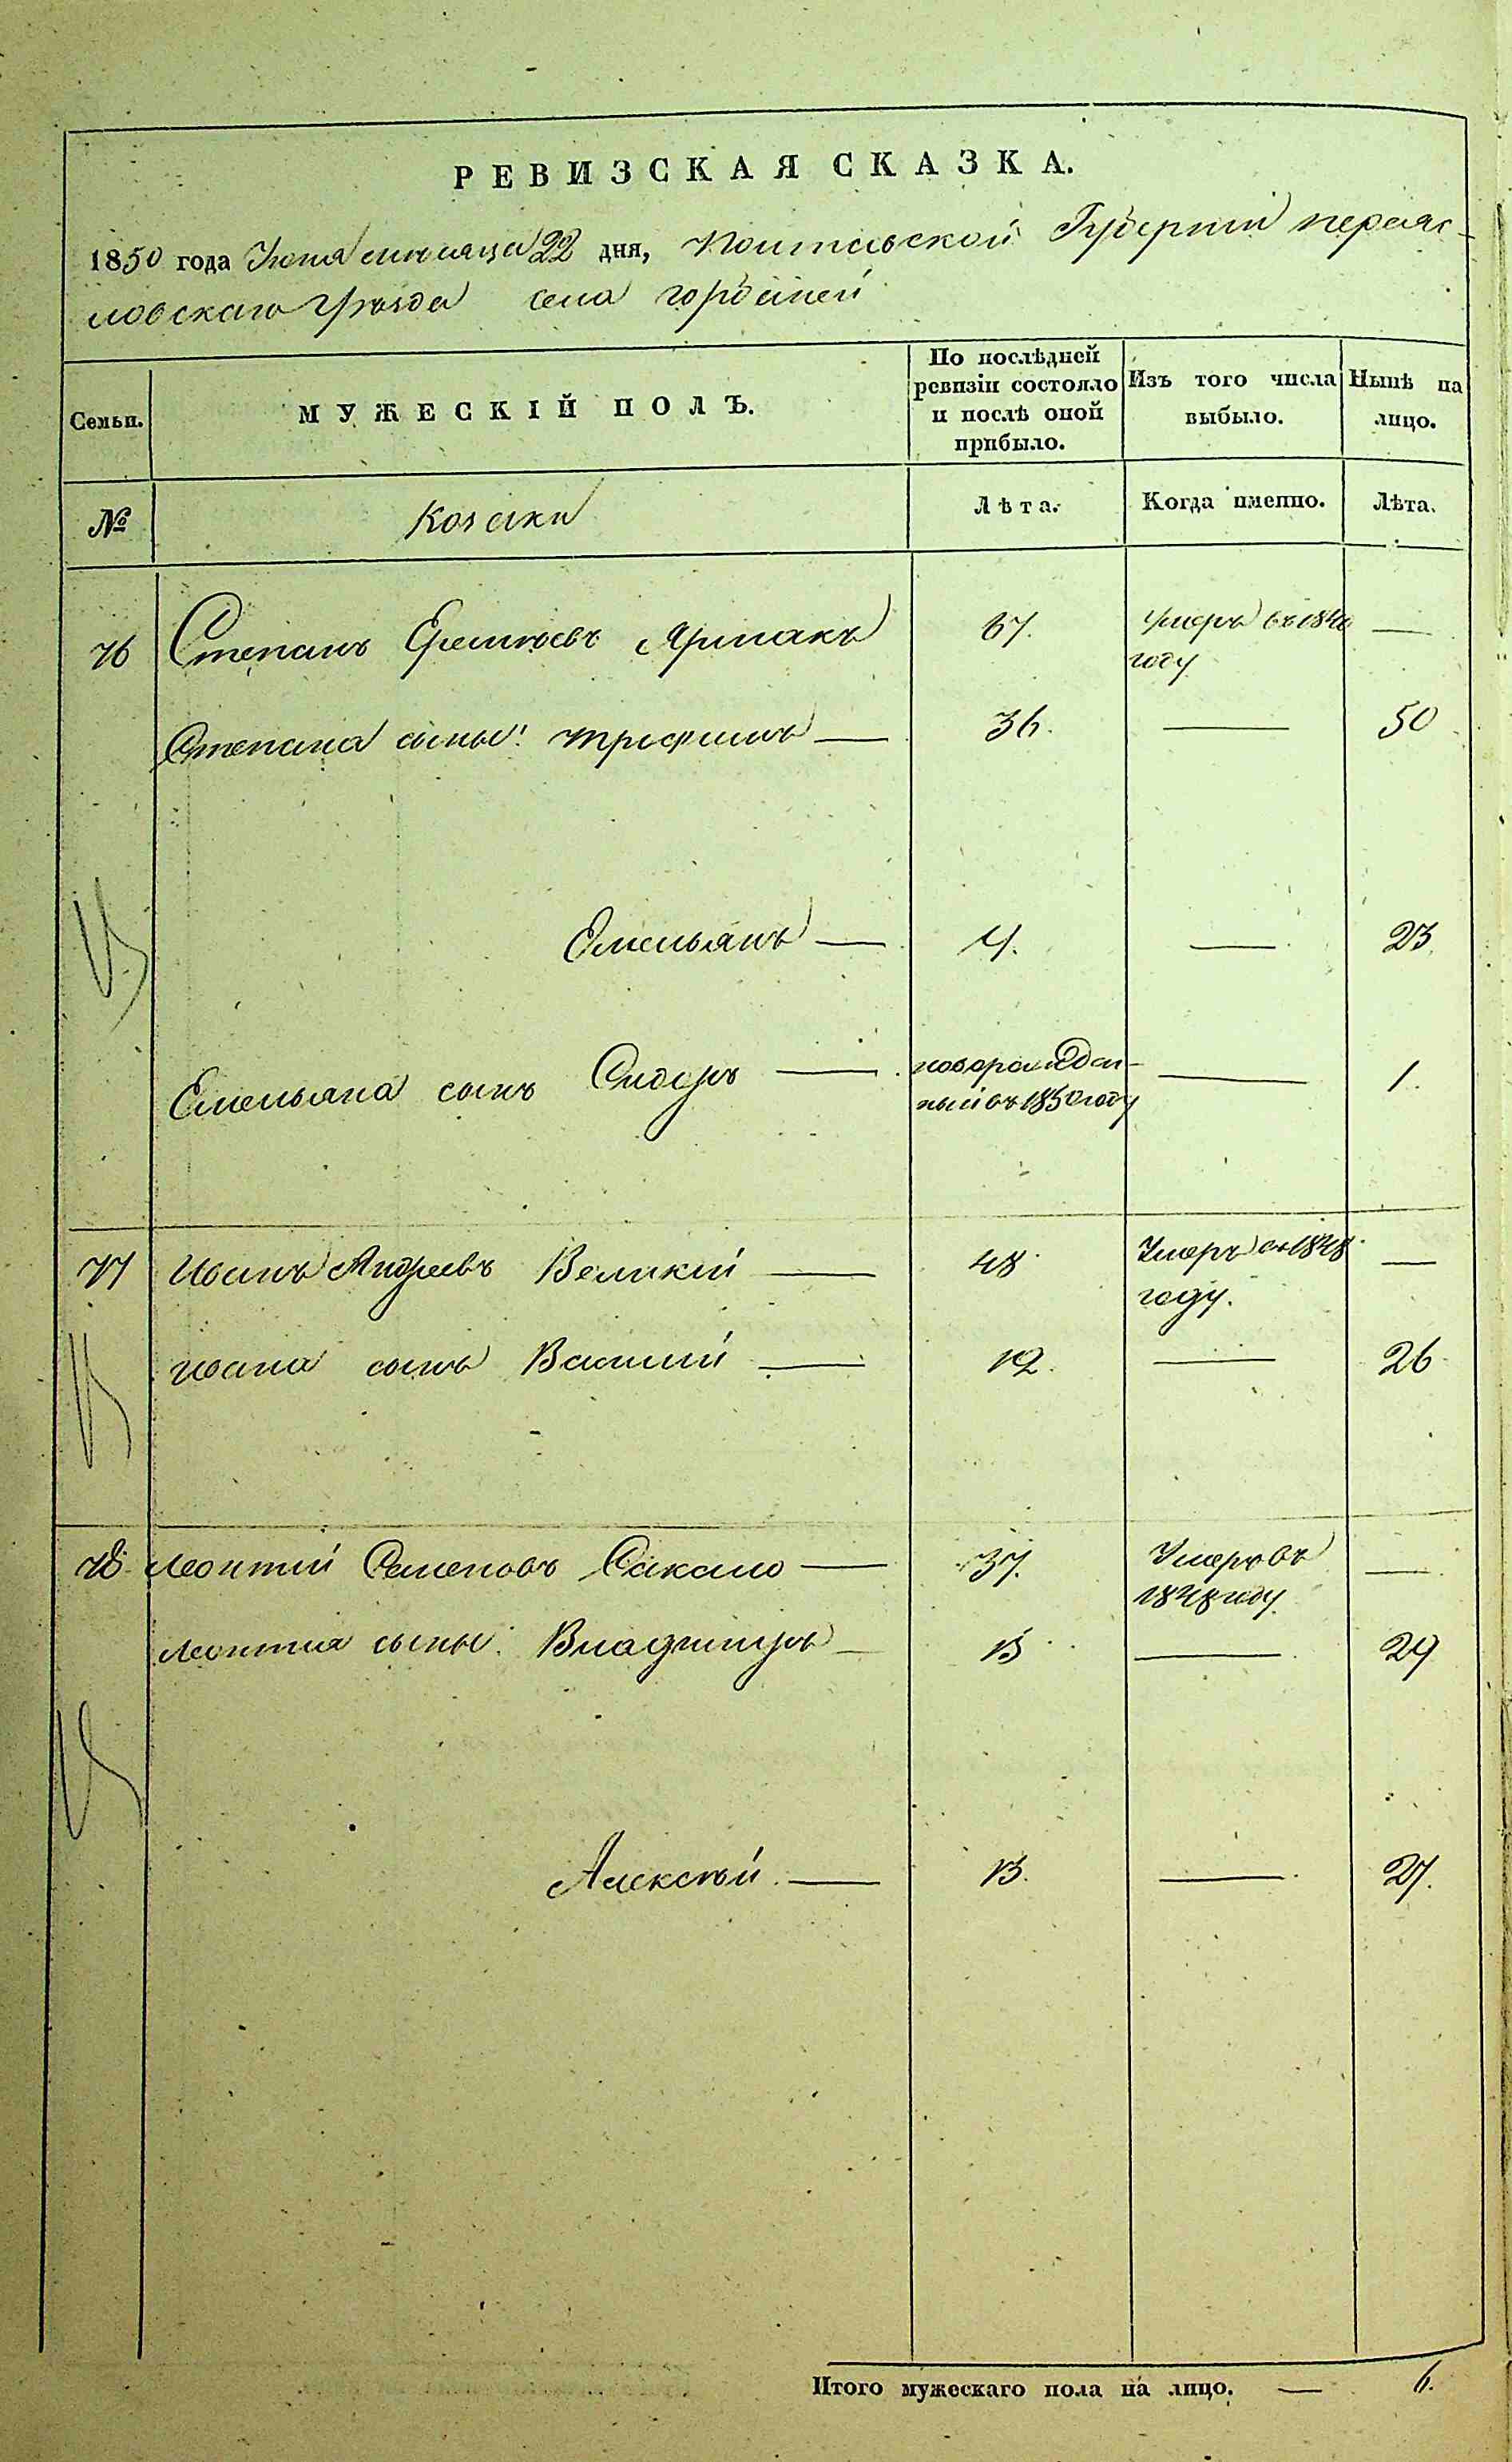 РЕВИЗСКАЯ СКАЗКА.
1850 года Июня месяца 22 дня, Полтавской Губернии переяс-
ловскаго Уѣзда села
Семьи.
МУЖЕСКІЙ ПОЛЪ.
По послѣдней ревизіи состояло и послѣ оной прибыло.
Изъ того числа выбыло.
Нынѣ на лицо.
№
Козаки
Лѣта.
Когда именно.
Лѣта.
76 Степанъ Ярмакъ 67. Умеръ въ 1840 году —
Степана сыны: Трофимъ — 36. — 50
Емельянъ — 4. — 23
Емельяна сынъ Сидоръ — новорожден-ный въ 1850 году — 1.
77 Иванъ Андреевъ Великій — 48 Умеръ въ 1848 году. —
Ивана сынъ Василий — 12. — 26
78. Леонтій Семеновъ Сакало — 37. Умеръ въ 1848 году. —
Леонтия сыны: Владимиръ — 15 — 29
Алексѣй. — 13. — 27.
Итого мужескаго пола на лицо. — 6.